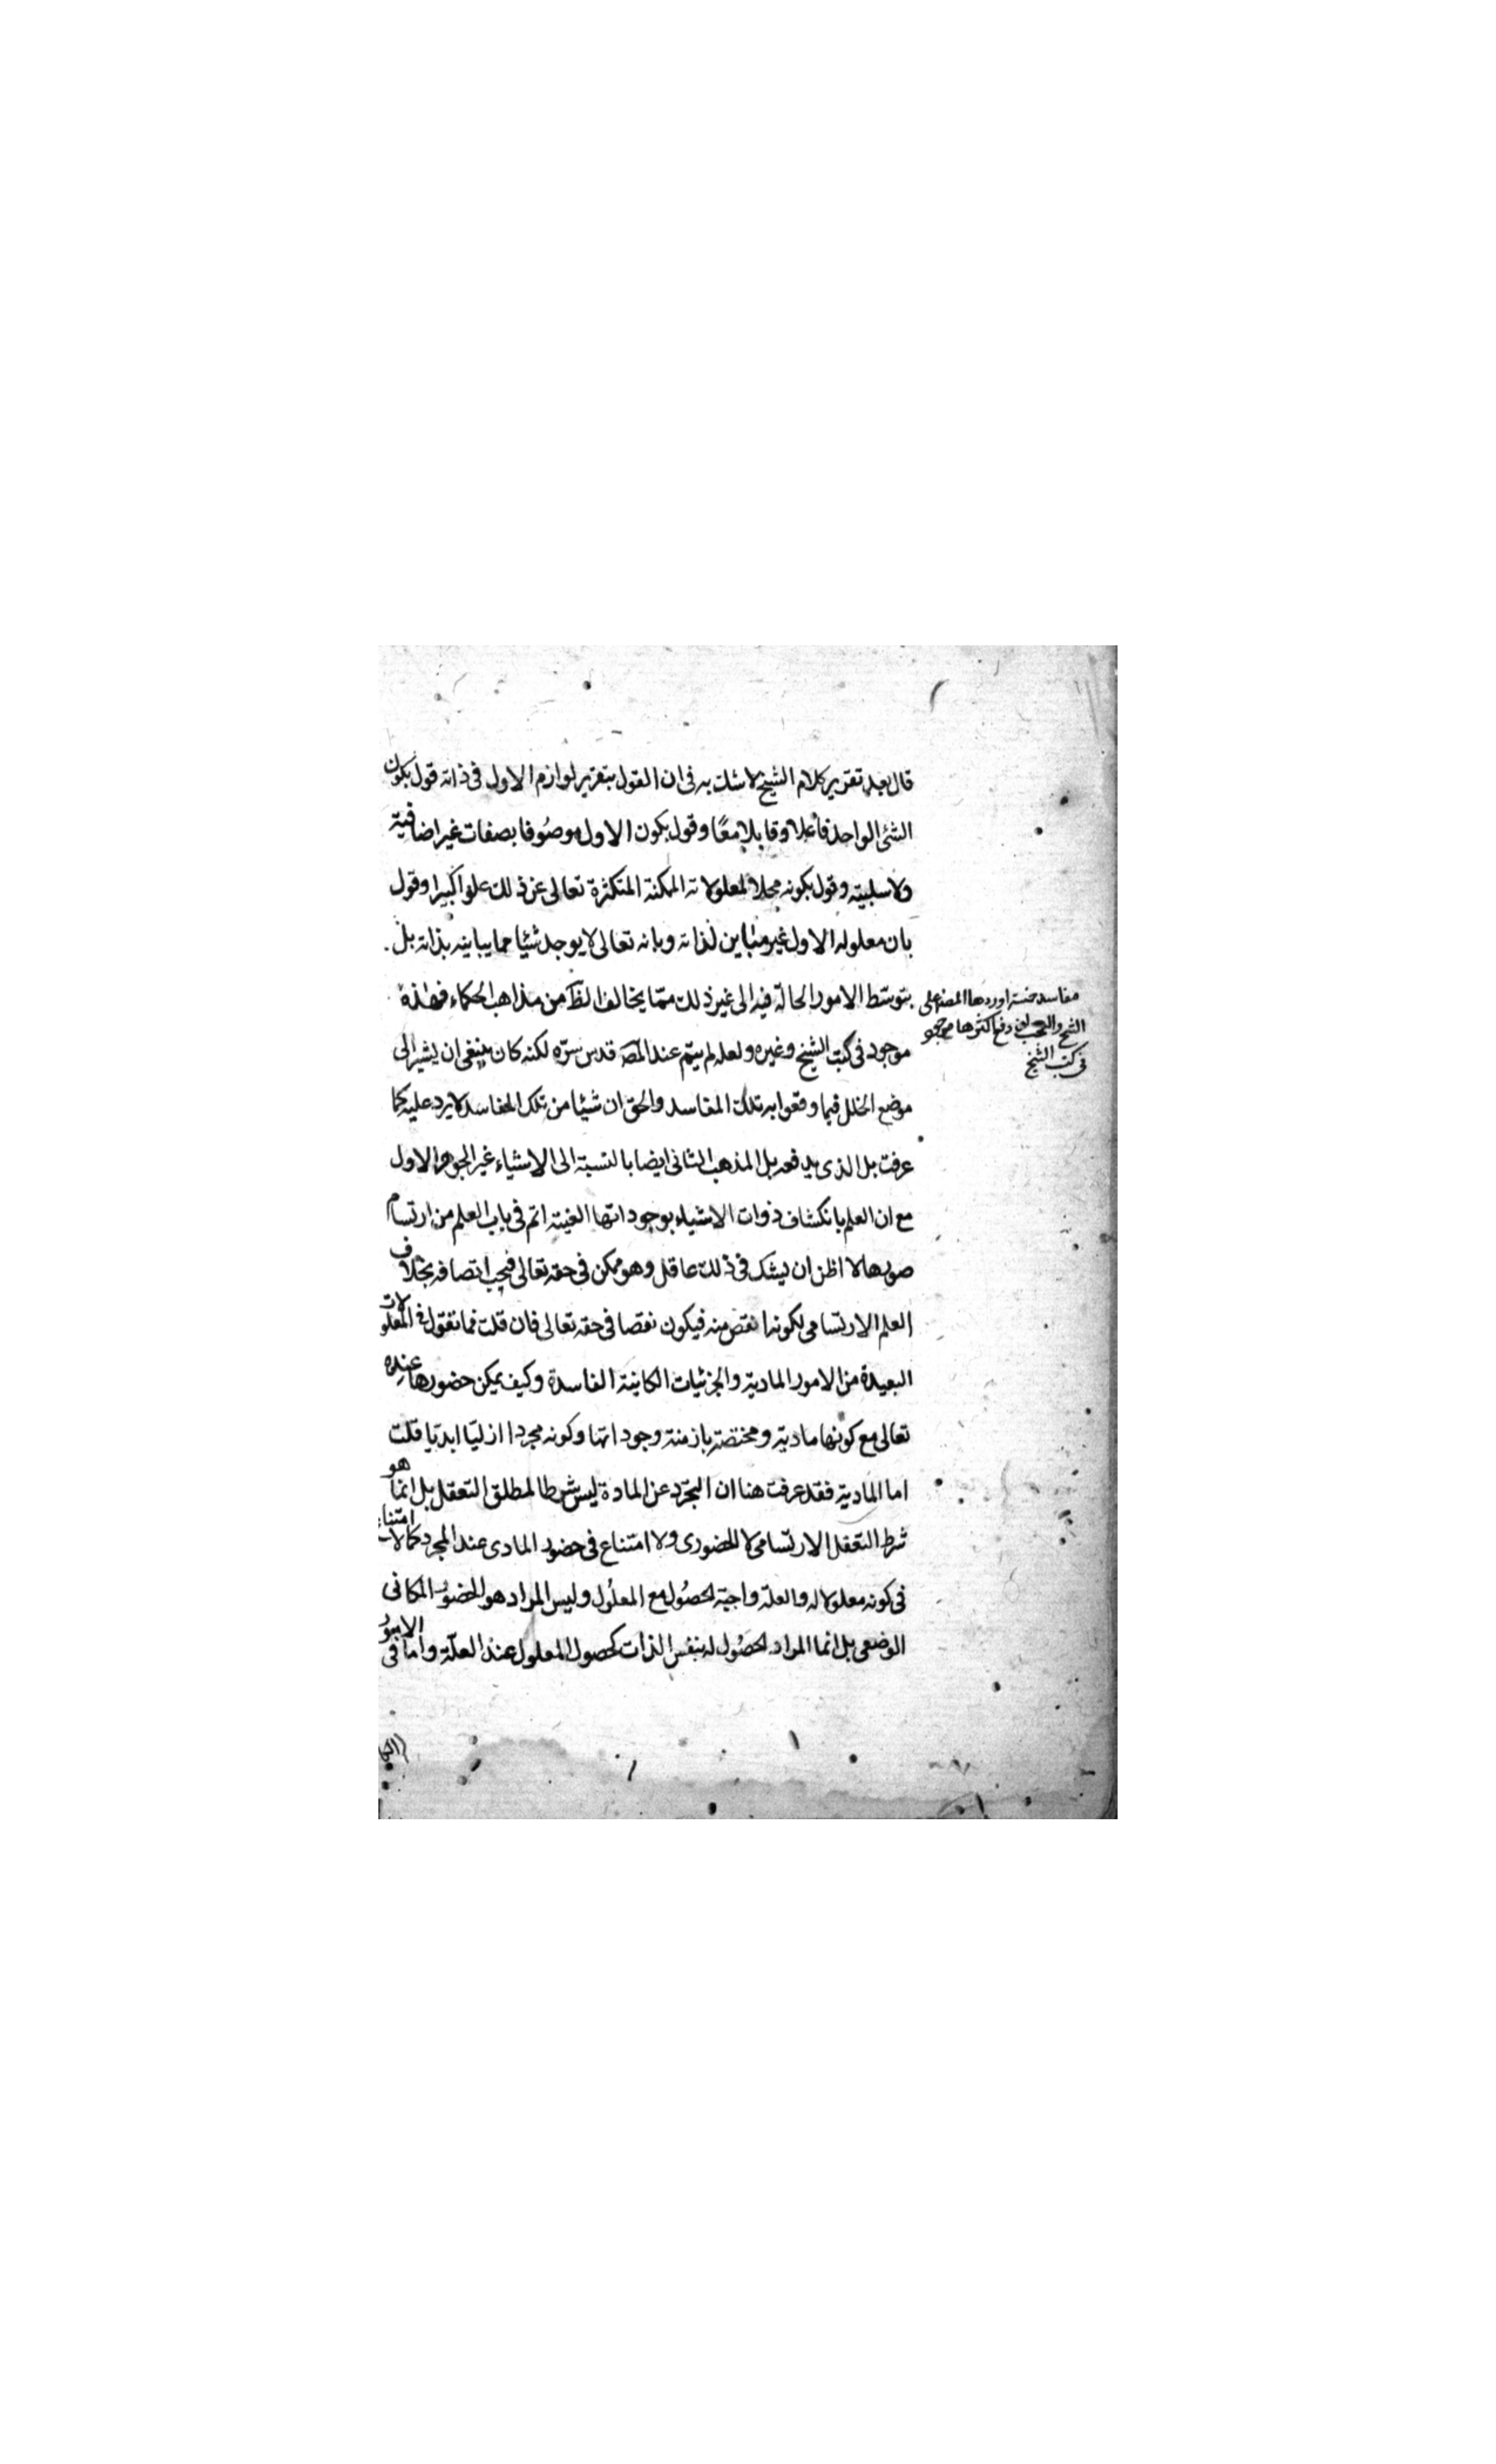 قال بعد تقرير كلام الشيخ لا شك به فى ان القول بتقرير لوازم الاول فى ذاته قول بكون
الشئ الواحد فاعلا وقابلا معًا وقول بكون الاول موصُوفا بصفات غير اضافية
ولا سلبية وقول بكونه محلا لمعلولاته الممكنة المتكثرة تعالى عن ذلك علوا كبيرا وقول
بان معلوله الاول غير مباين لذاته وبانه تعالى لا يوجد شيئا مما يباينه بذاته بل
بتوسّط الامور الحالّة فيه الى غير ذلك ممّا يخالف الظّ من مذاهب الحكماء فهذه
مفاسد خمسة اوردها المصنف على
الشيخ والعجب ان دفع اكثرها موجود
فى كتب الشيخ
موجود فى كتب الشيخ وغيره ولعله لم يتمّ عند المصّ قدس سرّه لكنه كان ينبغى ان يشير الى
موضع الخلل فيما وقعوا به تلك المفاسد والحق ان شيئا من تلك المفاسد لا يرد عليه كما
عرفت بل الذى يدفعه بل المذهب الثانى ايضا بالنسبة الى الاشياء غير الجوهر الاول
مع ان العلم بانكشاف ذوات الاشياء بوجوداتها العينية اتم فى باب العلم من ارتسام
صورها لا اظن ان يشك فى ذلك عاقل وهو ممكن فى حقه تعالى فيجب اتصافه بخلاف
العلم الارتسامى لكونه انقص منه فيكون نقصا فى حقه تعالى فان قلت فما تقول فى المعلولات
البعيدة من الامور المادية والجزئيات الكاينة الفاسدة وكيف يمكن حضورها عنده
تعالى مع كونها مادية ومختصّة بازمنة وجوداتها وكونه مجردا ازليّا ابديّا قلت
اما المادية فقد عرفت هنا ان التجرّد عن المادة ليس شرطا لمطلق التعقل بل انما هو
شرط التعقل الارتسامى لا الحضورى ولا امتناع فى حضور المادى عند المجرد كما لا امتناع
فى كونه معلولا له والعلة واجبة الحصُول مع المعلُول وليس المراد هو الحضُور المكانى
الوضعى بل انما المراد الحصُول له بنفس الذات كحصول المعلول عند العلّة واما فى الامور